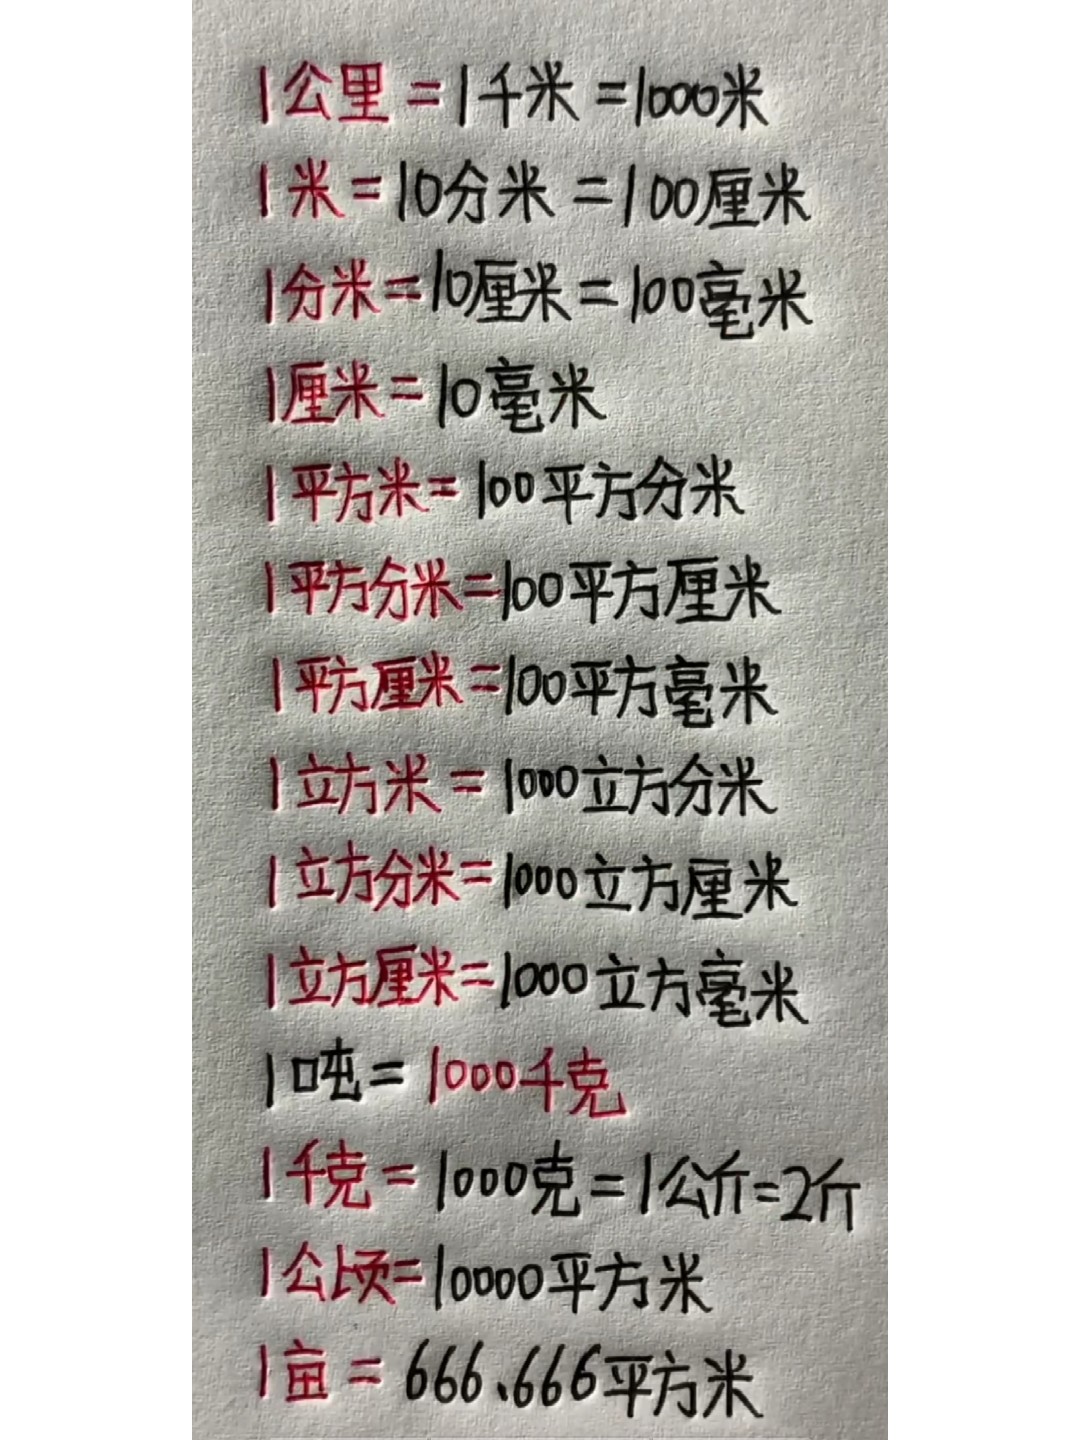 1公里=1千米=1000米
1米=10分米=100厘米
1分米=10厘米=100毫米
1厘米=10毫米
1平方米=100平方分米
1平方分米=100平方厘米
1平方厘米=100平方毫米
1立方米=1000立方分米
1立方分米=1000立方厘米
1立方厘米=1000立方毫米
1吨=1000千克
1千克=1000克=1公斤=2斤
1公顷=10000平方米
1亩=666.666平方米